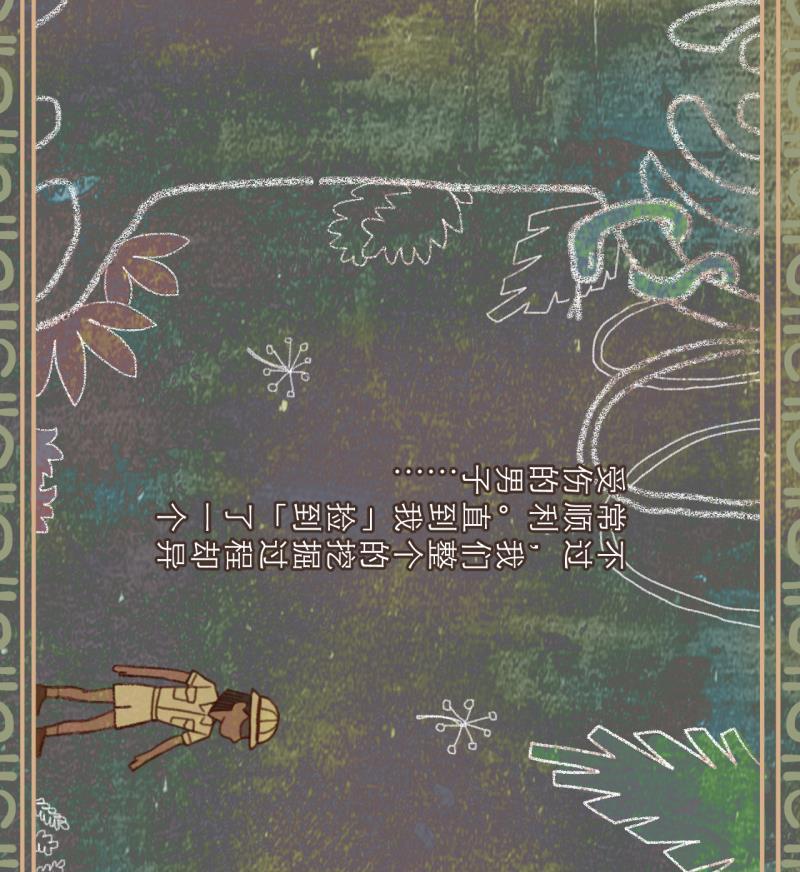 不过，我们整个的挖掘过程却异
常顺利。直到我「捡到」了一个
受伤的男子……